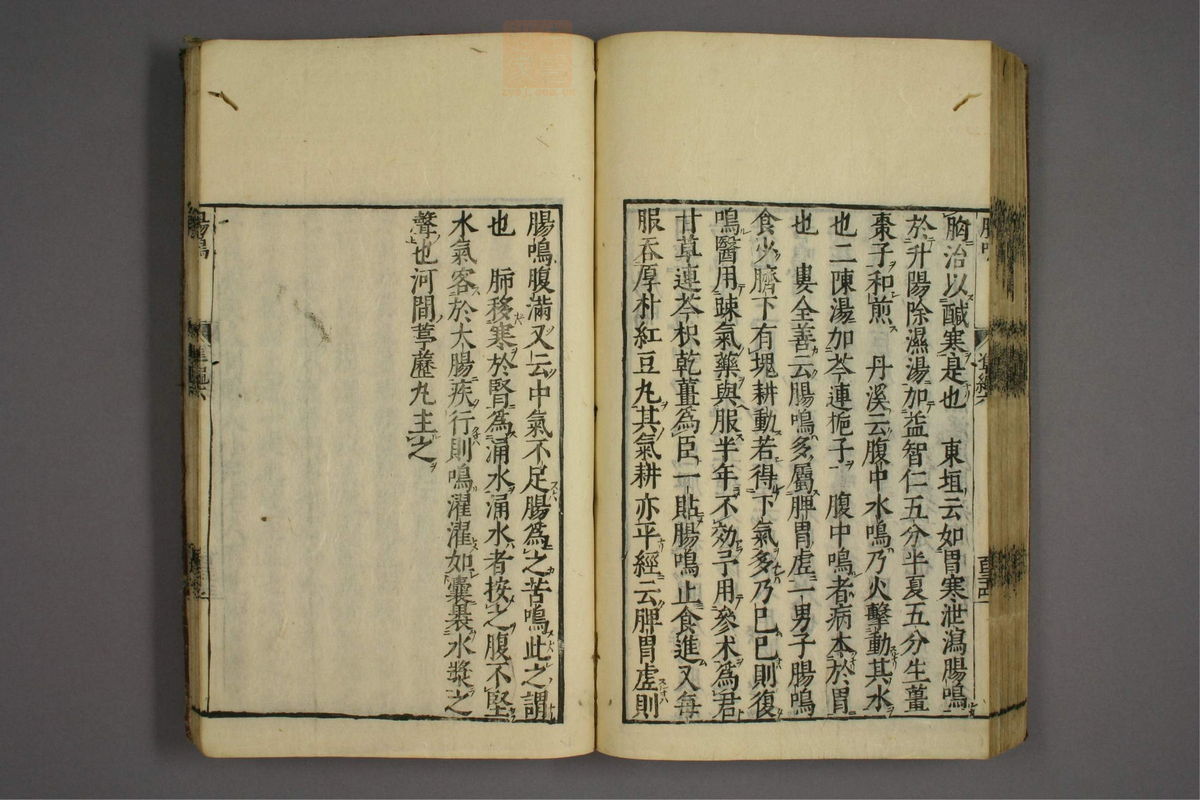 胸治以鹹寒是也　東垣云如胃寒泄瀉腸鳴
於升陽除濕湯加益智仁五分半夏五分生薑
棗子和煎　丹溪云腹中水鳴乃火擊動其水
也二陳湯加芩連梔子　腹中鳴者病本於胃
也　婁全善云腸鳴多屬脾胃虛一男子腸鳴
食少臍下有塊耕動若得下氣多乃已已則復
鳴醫用踈氣藥與服半年不効予用參朮為君
甘草連芩枳乾薑為臣一貼腸鳴止食進又每
服吞厚朴紅豆丸其氣耕亦平經云脾胃虛則
腸鳴腹滿又云中氣不足腸為之苦鳴此之謂
也　肺移寒於腎為涌水涌水者按之腹不堅
水氣客於大腸疾行則鳴濯濯如囊裹水漿之
聲也河間葶藶丸主之
腸鳴